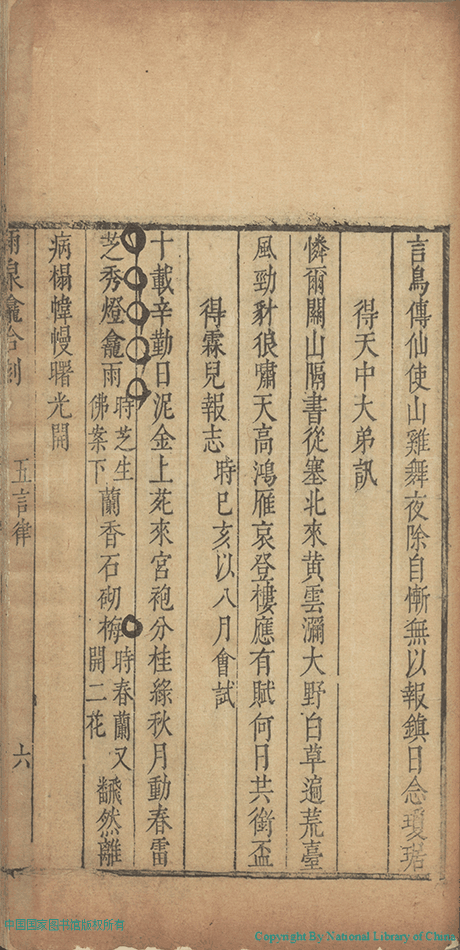 言鳥傳仙使山雞舞夜除自慚無以報鎮日念瓊琚
得天中大弟訊
憐爾關山隔書從塞北來黃雲瀰大野白草遍荒臺
風勁豺狼嘯天高鴻雁哀登樓應有賦何日共銜盃
得霖兒報志時已亥以八月會試
十載辛勤日泥金上苑來宮袍分桂綠秋月動春雷
芝秀燈龕雨時芝生佛案下蘭香石砌梅時春蘭又開二花飜然離
病榻幃幔曙光開
雨泉龕合刻 五言律 六
中国国家图书馆版权所有
Copyright By National Library of China